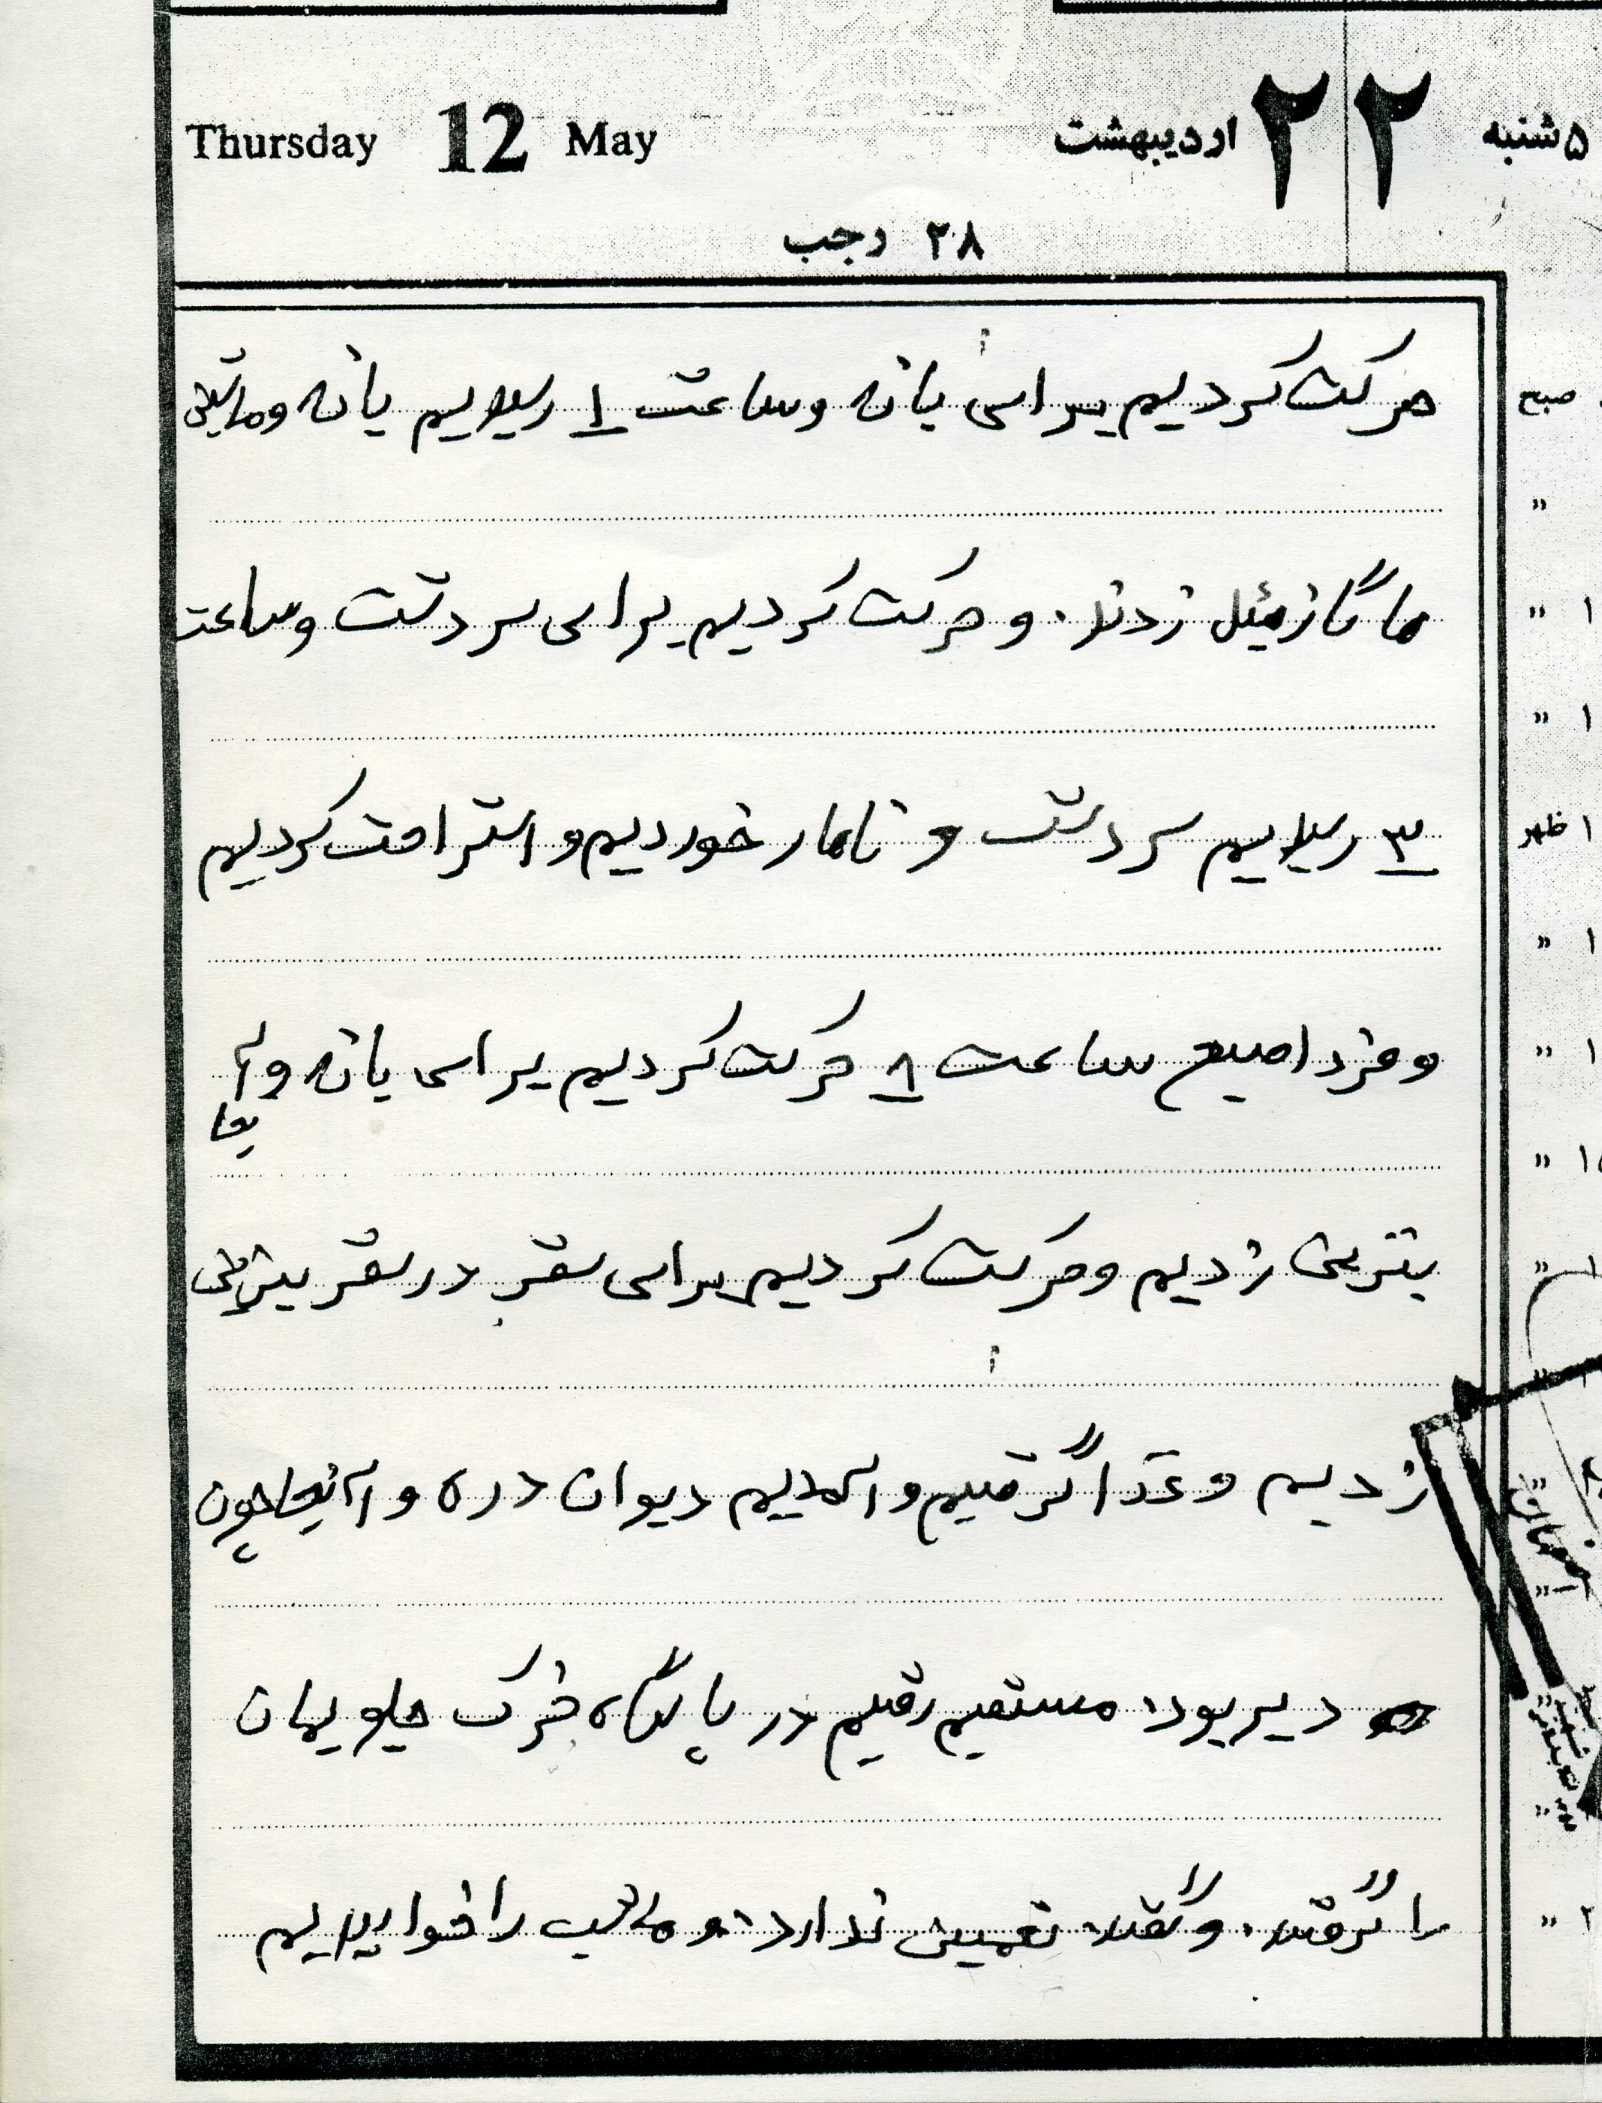 ۵شنبه ۲۲ اردیبهشت 12 May Thursday
۲۸ رجب
حرکت کردیم برای بانه و ساعت ۱ رسیدیم بانه و ماشین
صبح
ما گازئیل زدند. و حرکت کردیم برای سردشت و ساعت
۳ رسیدیم سردشت و ناهار خوردیم و استراحت کردیم
ظهر
و فردا صبح ساعت ۸ حرکت کردیم برای بانه و آنجا
بنزین زدیم و حرکت کردیم برای سقز در سقز بنزین
زدیم و غذا گرفتیم و آمدیم دیوان دره و آنجا چون
دیر بود مستقیم رفتیم در پایگاه خرک جلویمان
را گرفتند. و گفتند تعمین ندارد و ما شب را خوابیدیم